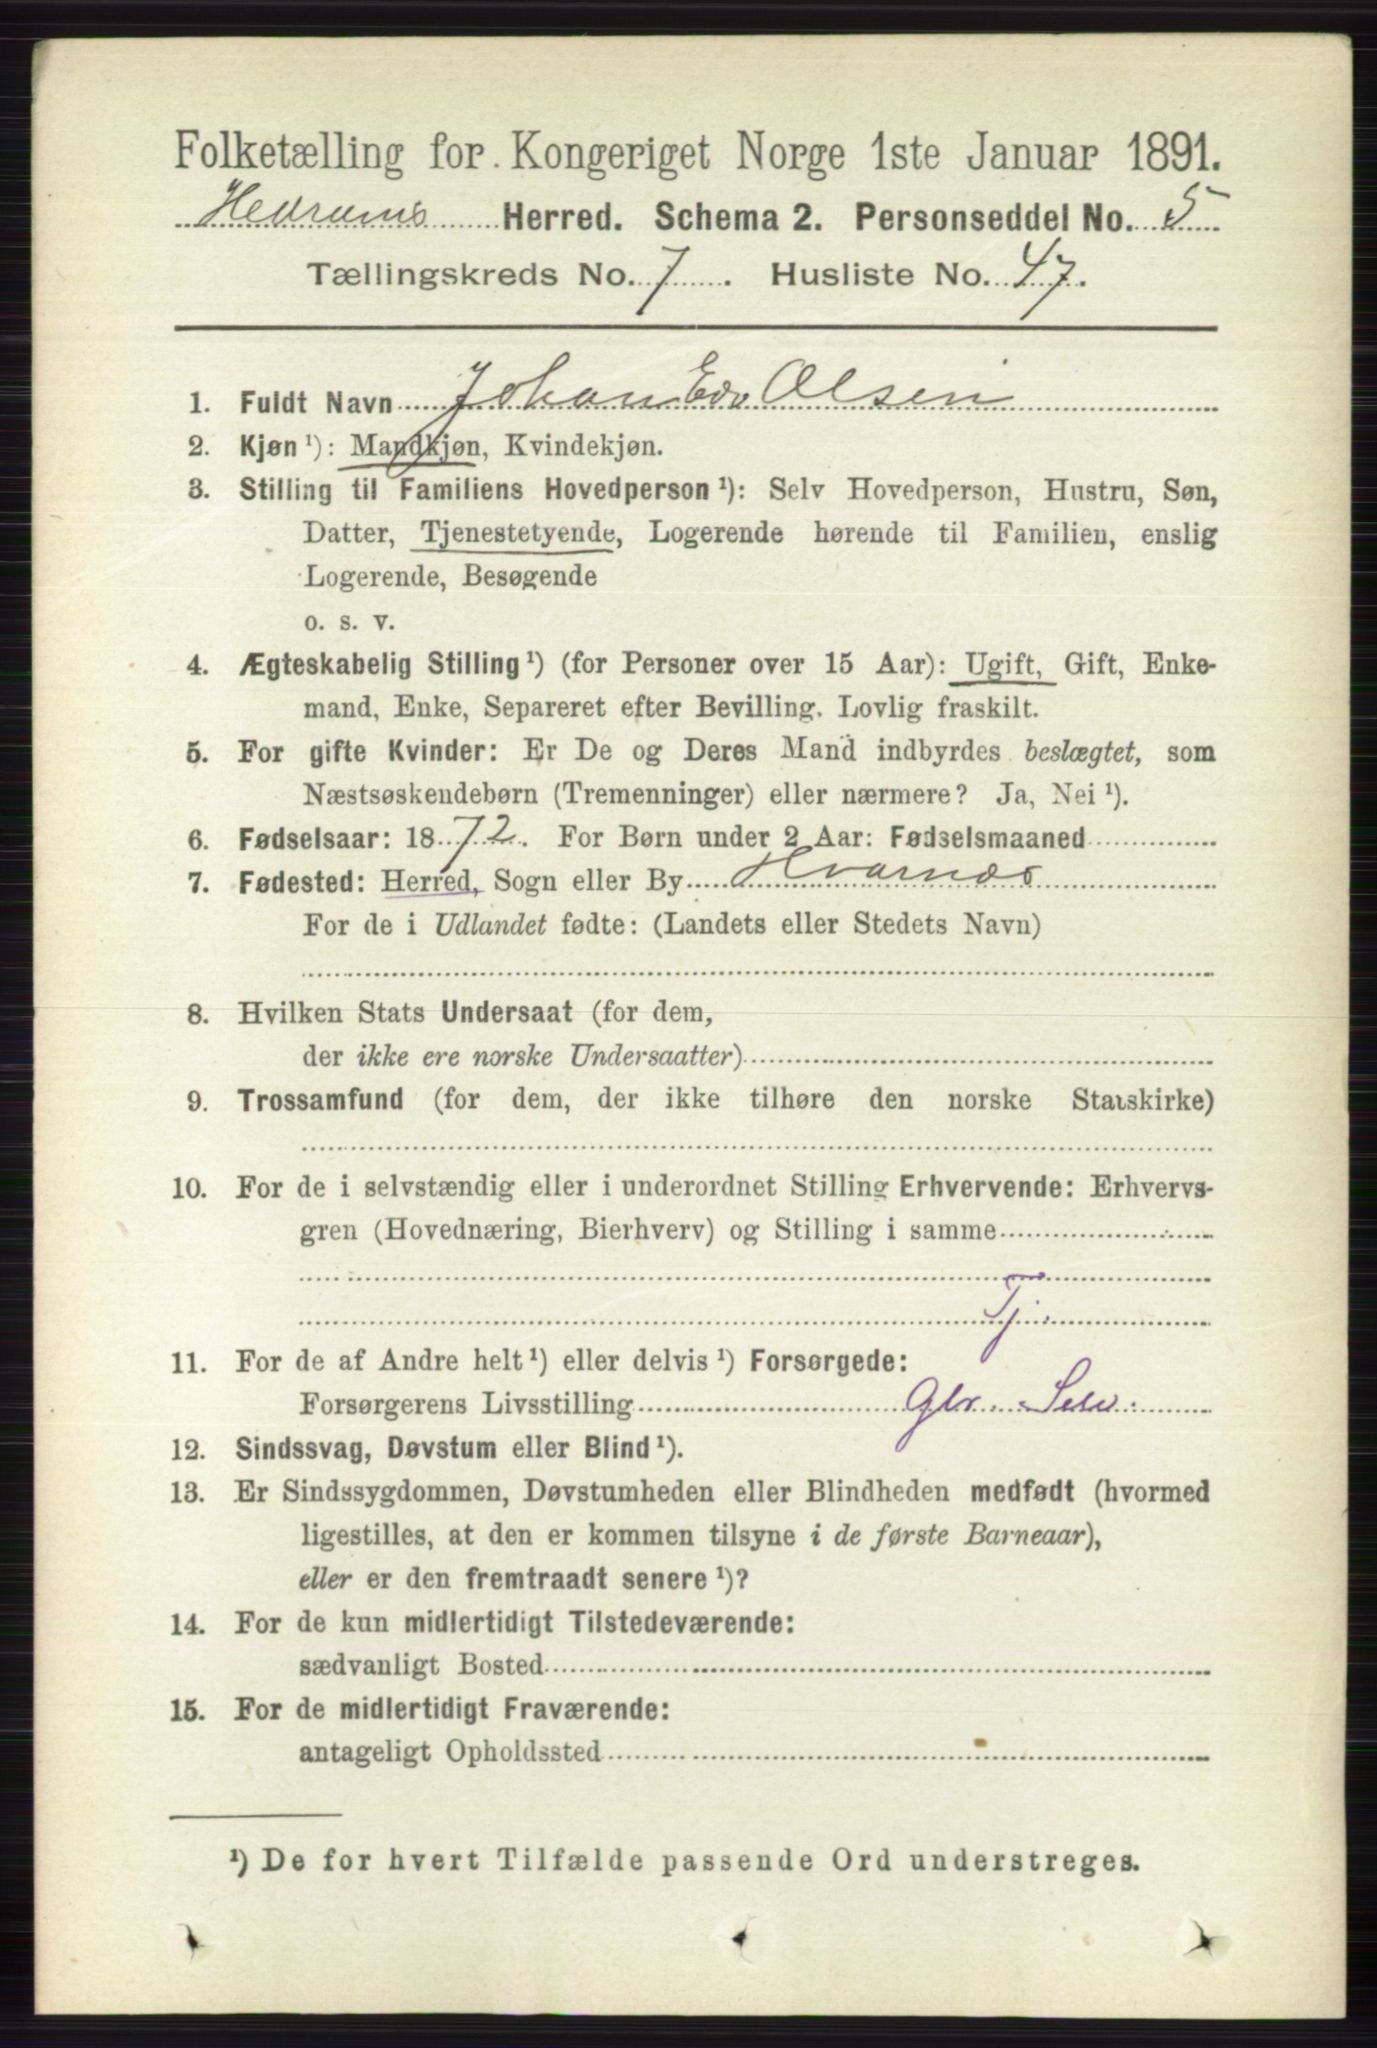 Folketælling for Kongeriget Norge 1ste Januar 1891.
Hedrums Herred. Schema 2. Personseddel No. 5
Tællingskreds No. 7. Husliste No. 47.
1. Fuldt Navn Johan Edv Olsen
2. Kjøn ¹): Mandkjøn, Kvindekjøn.
3. Stilling til Familiens Hovedperson ¹): Selv Hovedperson, Hustru, Søn,
Datter, Tjenestetyende, Logerende hørende til Familien, enslig
Logerende, Besøgende
o. s. v.
4. Ægteskabelig Stilling ¹) (for Personer over 15 Aar): Ugift, Gift, Enke-
mand, Enke, Separeret efter Bevilling. Lovlig fraskilt.
5. For gifte Kvinder: Er De og Deres Mand indbyrdes beslægtet, som
Næstsøskendebørn (Tremenninger) eller nærmere? Ja, Nei ¹).
6. Fødselsaar: 1872. For Børn under 2 Aar: Fødselsmaaned
7. Fødested: Herred, Sogn eller By Hvarnæs
For de i Udlandet fødte: (Landets eller Stedets Navn)
8. Hvilken Stats Undersaat (for dem,
der ikke ere norske Undersaatter)
9. Trossamfund (for dem, der ikke tilhøre den norske Statskirke)
10. For de i selvstændig eller i underordnet Stilling Erhvervende: Erhvervs-
gren (Hovednæring, Bierhverv) og Stilling i samme
Tj.
11. For de af Andre helt ¹) eller delvis ¹) Forsørgede:
Forsørgerens Livsstilling Gbr. Selv.
12. Sindssvag, Døvstum eller Blind ¹).
13. Er Sindssygdommen, Døvstumheden eller Blindheden medfødt (hvormed
ligestilles, at den er kommen tilsyne i de første Barneaar),
eller er den fremtraadt senere ¹)?
14. For de kun midlertidigt Tilstedeværende:
sædvanligt Bosted
15. For de midlertidigt Fraværende:
antageligt Opholdssted
¹) De for hvert Tilfælde passende Ord understreges.